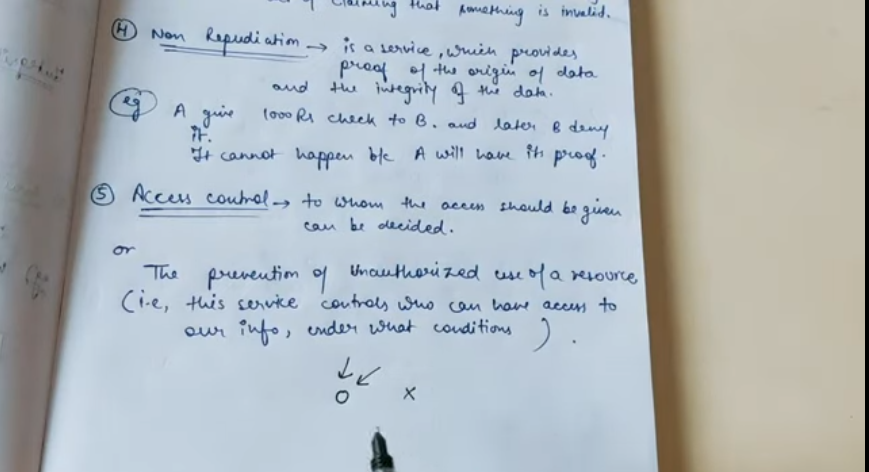 claiming that something is invalid.
④ Non Repudiation → is a service, which provides
proof of the origin of data
and the integrity of the data.
eg A give 1000 Rs check to B. and later B deny
it.
It cannot happen b/c A will have its proof.
⑤ Access control → to whom the access should be given
can be decided.
or
The prevention of Unauthorized use of a resource
(i.e, this service controls who can have access to
our info, under what conditions).
O X